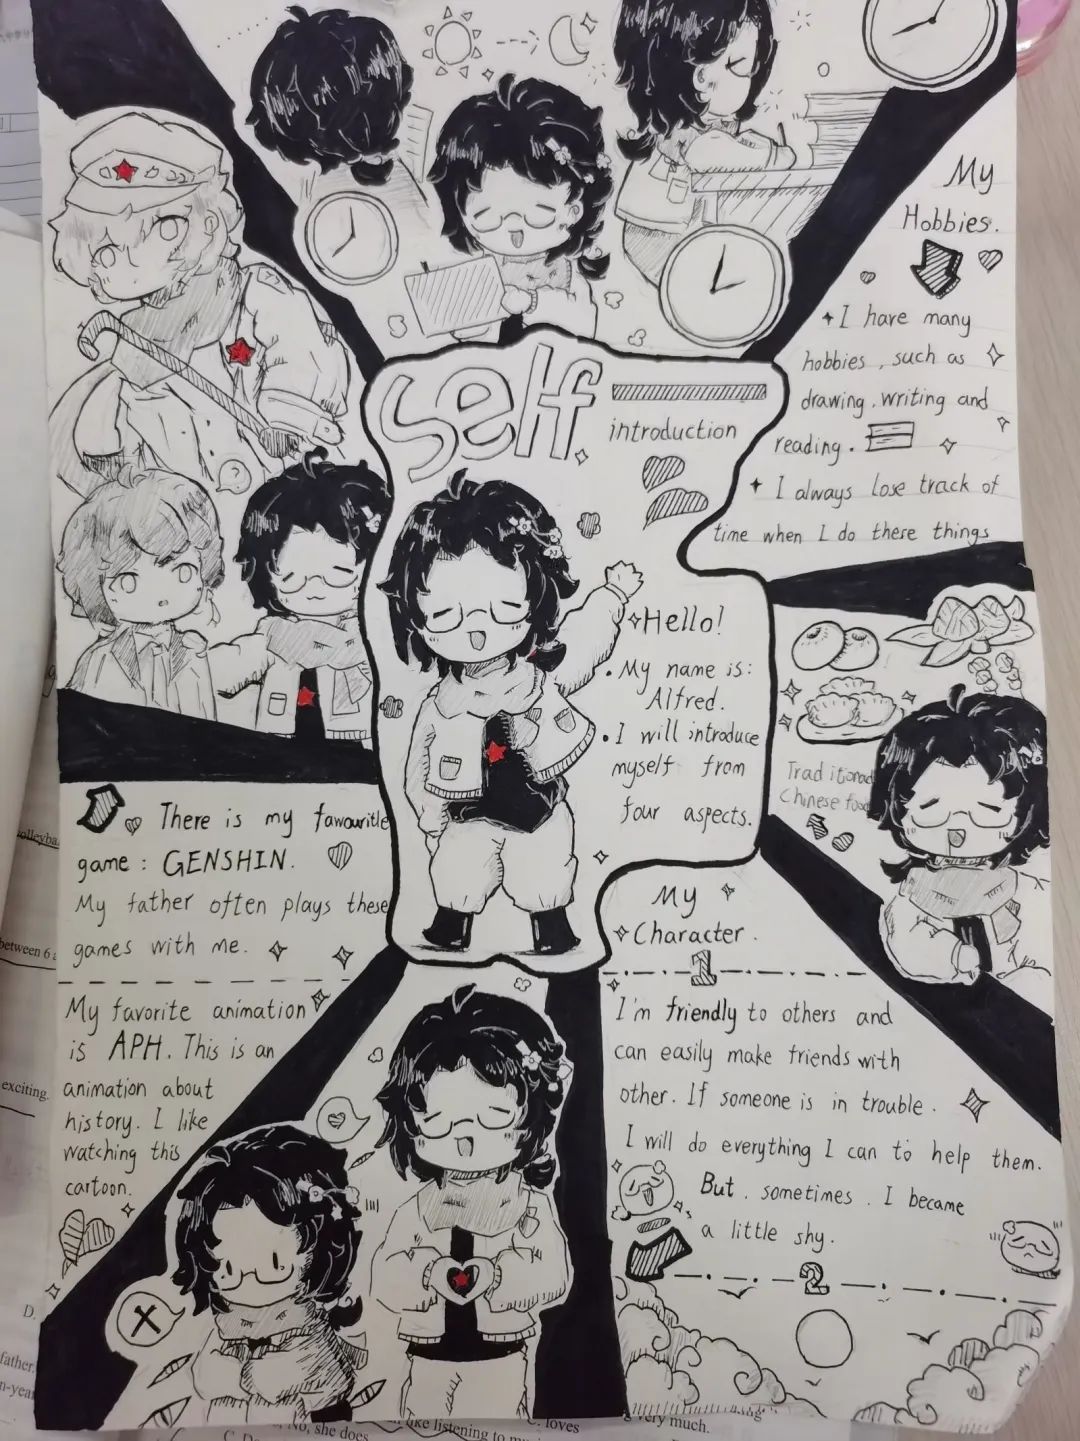 Self
introduction
Hello!
My name is:
Alfred.
I will introduce
myself from
four aspects.
My
Hobbies.
I have many
hobbies, such as
drawing, writing and
reading.
I always lose track of
time when I do there things
Traditional
Chinese food
My
Character.
1
I'm friendly to others and
can easily make friends with
other. If someone is in trouble.
I will do everything I can to help them.
But, sometimes, I became
a little shy.
2
There is my fawouritle
game: GENSHIN.
My father often plays these
games with me.
My favorite animation
is APH. This is an
animation about
history. I like
watching this
cartoon.
exciting.
D.
loves
very much.